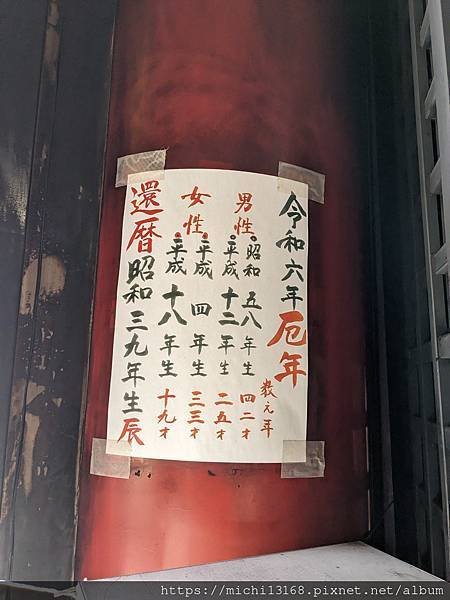 令和六年厄年
数え年
男性
・昭和五八年生 四二才
・平成十二年生 二五才
女性
・平成四年生 三三才
・平成十八年生 十九才
還暦 昭和三九年生 辰
https://michi13168.pixnet.net/album